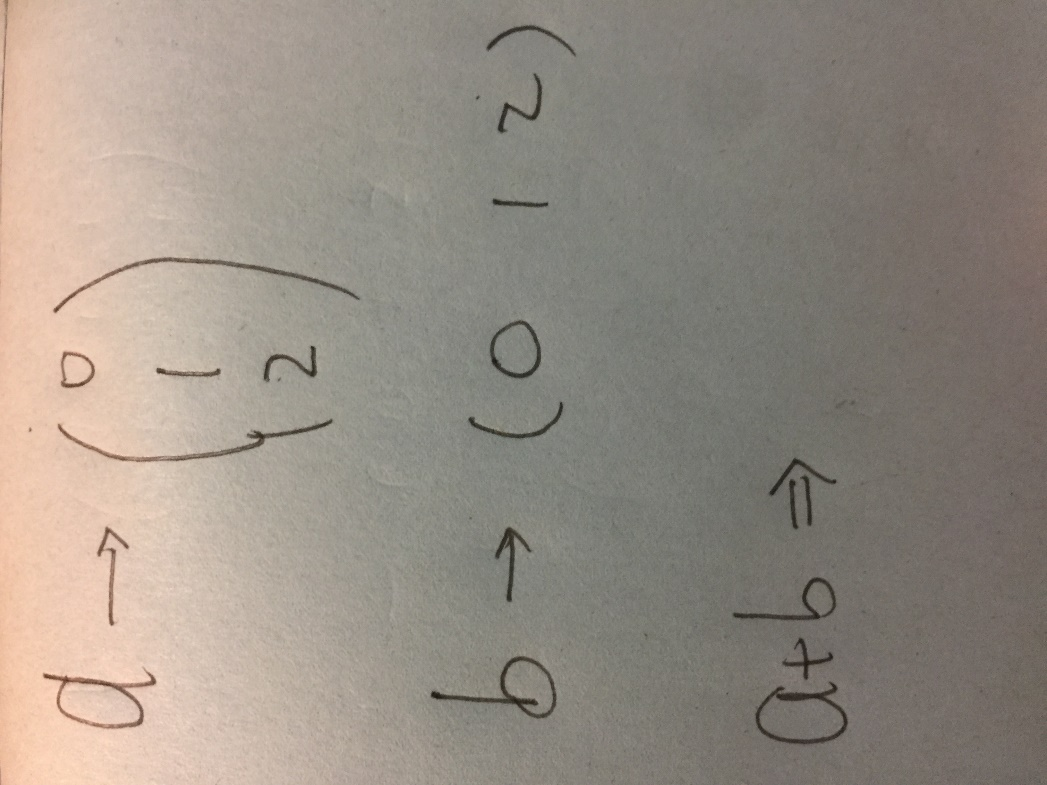 a → ( 0
1
2 )
b → ( 0 1 2 )
a+b ⇒